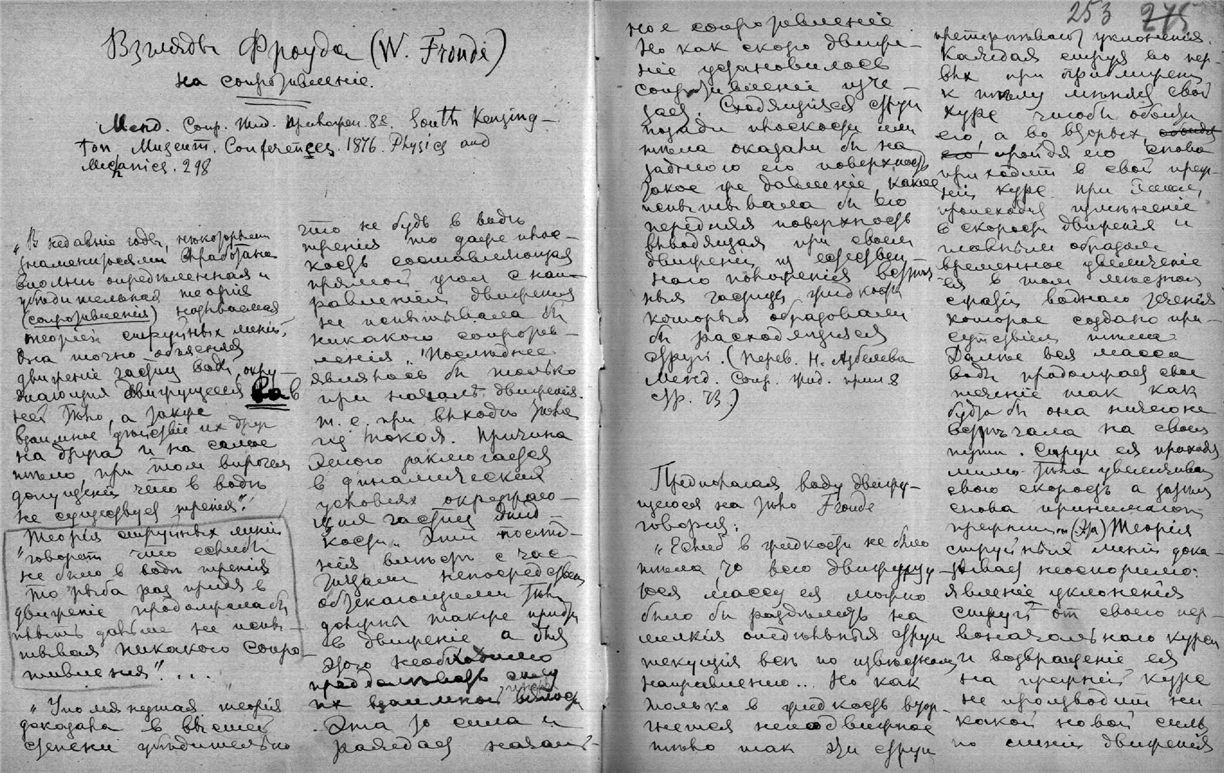 Взгляды Фроуда (W. Froude)
на сопротивление.
Менд. Сопр. жид. 88. South Kensing-
ton Museum. Conferences. 1876. Physics and
Mechanics. 298
„В недавние годы, некоторыми
знаменитостями выработана
вполне определенная и
убедительная теорія
(сопротивленія) называемая
теоріей струйных линій;
она точно объясняя
движеніе частиц воды, окру-
жающих движущееся в
ней тѣло, а также
взаимное действіе их друг
на друга и на самое
тѣло, при том впрочем
допущеніи что в воде
не существует тренія".
Теорія струйных линій
"говорит что еслибы
не было в воде тренія
то рыба раз придя в
движеніе продолжала бы
плыть дальше не испы-
тывая никакого сопро-
тивленія"...
„Упомянутая теорія
доказана в высшей
степени убедительно
что не будь в воде
тренія то даже плос-
кость составляющая
прямой угол с нап-
равленіем движенія
не испытывала бы
никакого сопротив-
ленія. Последнее
явилось бы только
при начале движенія
т. е. при выходе тела
из покоя. Причина
этого заключается
в динамических
условіях окружаю-
щих частиц жид-
кости. Эти послед-
нія вместе с час-
тицами непосредствен
обтекающими тело
должны также прійти
в движеніе а для
этого необходимо
преодолевать силу
их взаимной инерціи
Эта то сила и
рождает началь-
ное сопротивленіе
Но как скоро движе-
ніе установилось
сопротивленіе изче-
зает. Сходящіяся струи
позади плоскости или
тела оказали бы на
заднюю его поверхность
такое же давленіе, какое
испытывала бы его
передняя поверхность
выводящая при своем
движеніи из естествен-
ного положенія встреч-
ныя частицы жидкости
которыя образовали
бы расходящіяся
струи. (Перев. Н. Азбелева
Менд. Сопр. жид. прим 8
стр. 73)
Предполагая воду движу-
щеюся на тело Froude
говорит:
„Еслиб в жидкости не было
тела то всю движущу-
юся массу ея можно
было бы разделить на
мелкія отдельныя струи
текущія все по известному
направленію... Но как
только в жидкость вдви-
гается неподвижное
тело так эти струи
253
275
претерпевают уклоненія.
Каждая струя во пер-
вых при приближен
к телу меняет свой
курс чтобы обойти
его, а во вторых,
пройдя его, снова
приходит в свой преж-
ній курс. При этом
происходит изменение
в скорости движенія и
главным образом
временное увеличение
ея в том местном
теченія
которое создано при-
сутствіем тела
Далее вся масса
воды продолжает свое
теченіе так как
будто бы она ничего не
встречала на своем
пути. Струи ея проходя
мимо тела увеличивают
свою скорость а затем
снова принимают
прежнюю" Теорія
струйных линій дока-
зывает неоспоримо:
явленіе уклоненія
струй от своего пер-
воначального курса
и возвращеніе ея
на прежній курс
не производит ни
какой новой силы
по линіи движенія